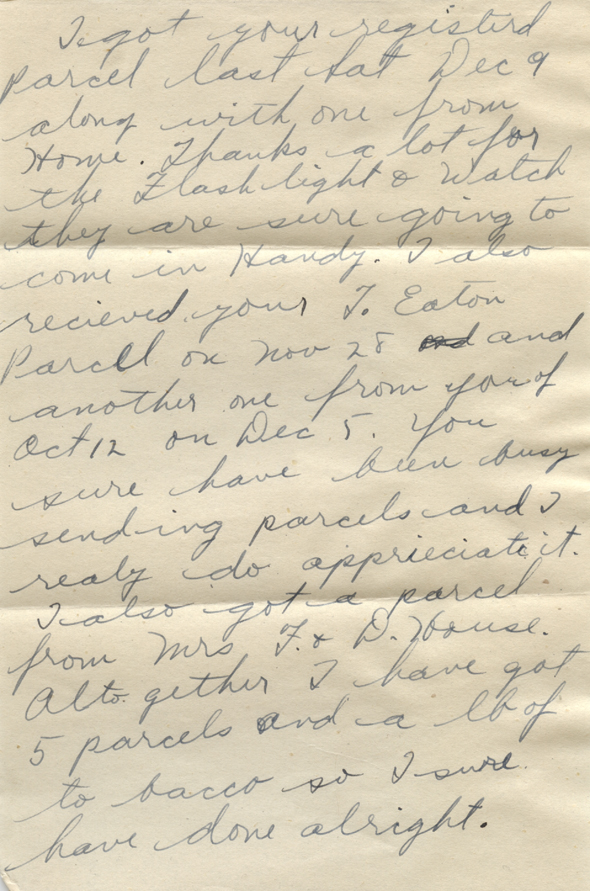 I got your registerd
parcel last Sat Dec 9
along with one from
Home. Thanks a lot for
the Flash light & Watch
they are sure going to
come in Handy. I also
recieved your T. Eaton
Parcel on Nov 28 and and
another one from you of
Oct 12 on Dec 5. You
sure have been busy
sending parcels and I
realy do apprieciate it.
I also got a parcel
from Mrs F. & D. House.
Alto gether I have got
5 parcels and a lb of
to bacco so I sure
have done alright.